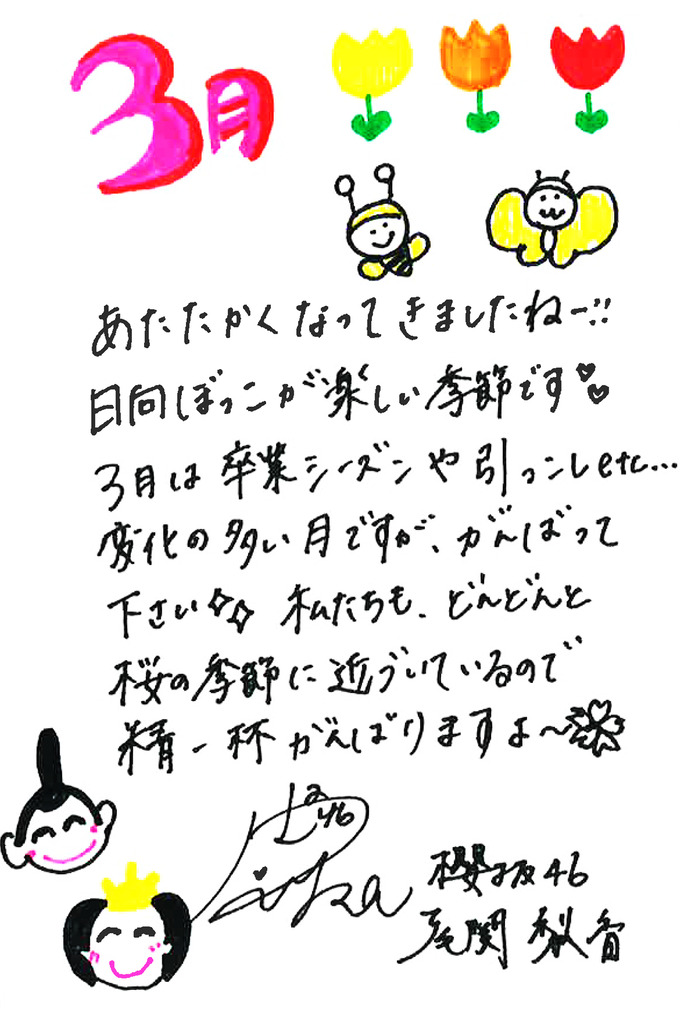 3月
あたたかくなってきましたねー!!
日向ぼっこが楽しい季節です♡♡
3月は卒業シーズンや引っこしetc...
変化の多い月ですが、がんばって
下さい✧✧ 私たちも、どんどんと
桜の季節に近づいているので
精一杯がんばりますよ〜
櫻坂46
尾関 梨香